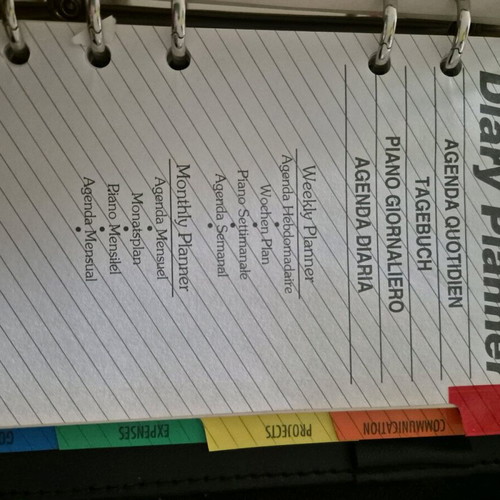 Diary Planner
AGENDA QUOTIDIEN
TAGEBUCH
PIANO GIORNALIERO
AGENDA DIARIA
Weekly Planner
Agenda Hebdomadaire
Wochen Plan
Piano Settimanale
Agenda Semanal
Monthly Planner
Agenda Mensuel
Monatsplan
Piano Mensilel
Agenda Mensual
COMMUNICATION
PROJECTS
EXPENSES
GO